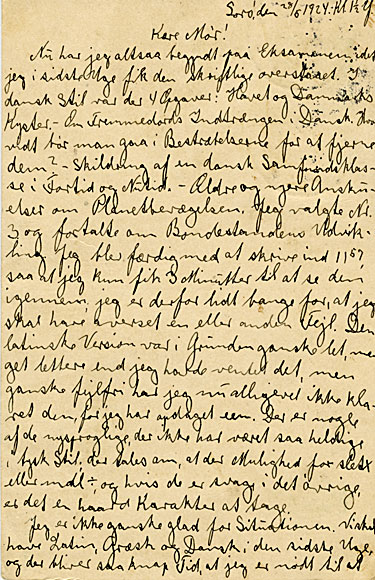 Sorø, den 28/6 1924. Kl 1½ Ef
Kære Mor!
Nu har jeg altsaa begyndt paa Eksamenen, idet
jeg i sidste Uge fik den skriftlige overstaaet. I
dansk Stil var der 4 Opgaver: Havet og Danmarks
Kyster. – En Fremmedords Indtrængen i Dansk. Hvor
vidt bør man gaa i Bestræbelserne for at fjerne
dem? – Skildring af en dansk Samfundsklas-
se i Fortid og Nutid. – Ældre og nyere Ansku-
elser om Planetbevægelsen. Jeg valgte Nr.
3 og fortalte om Bondestandens Udvik-
ling. Jeg blev færdig med at skrive ind 11 57,
saa at jeg kun fik 3 Minutter til at se den
igennem, jeg er derfor lidt bange for, at jeg
skal have overset en eller anden Fejl. Den
latinske Version var i Grunden ganske let, me-
get lettere end jeg havde ventet det, men
ganske fejlfri har jeg nu alligevel ikke kla-
ret den, for jeg har opdaget een. Der er nogle
af de nysproglige, der ikke har været saa heldige
i tysk Stil, der tales om, at der Mulighed for slet
eller mdl ÷, og hvis de er svag i det øvrige,
er det en haard Karakter at tage.
Jeg er ikke ganske glad for Situationen. Vi skal
have Latin, Græsk og Dansk i den sidste Uge,
og der bliver saa knap Tid, at jeg er nødt til at